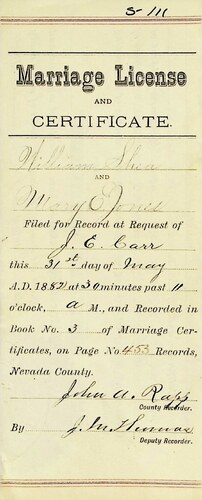 S-111
Marriage License
AND
CERTIFICATE.
William Shea
AND
Mary E Jones
Filed for Record at Request of
J. E. Carr
this 31st day of May
A. D. 1882 at 30 minutes past 11
o'clock, a M., and Recorded in
Book No. 3 of Marriage Cer-
tificates, on Page No. 453 Records,
Nevada County.
John A. Rapp
County Recorder.
By J. M. Thomas
Deputy Recorder.